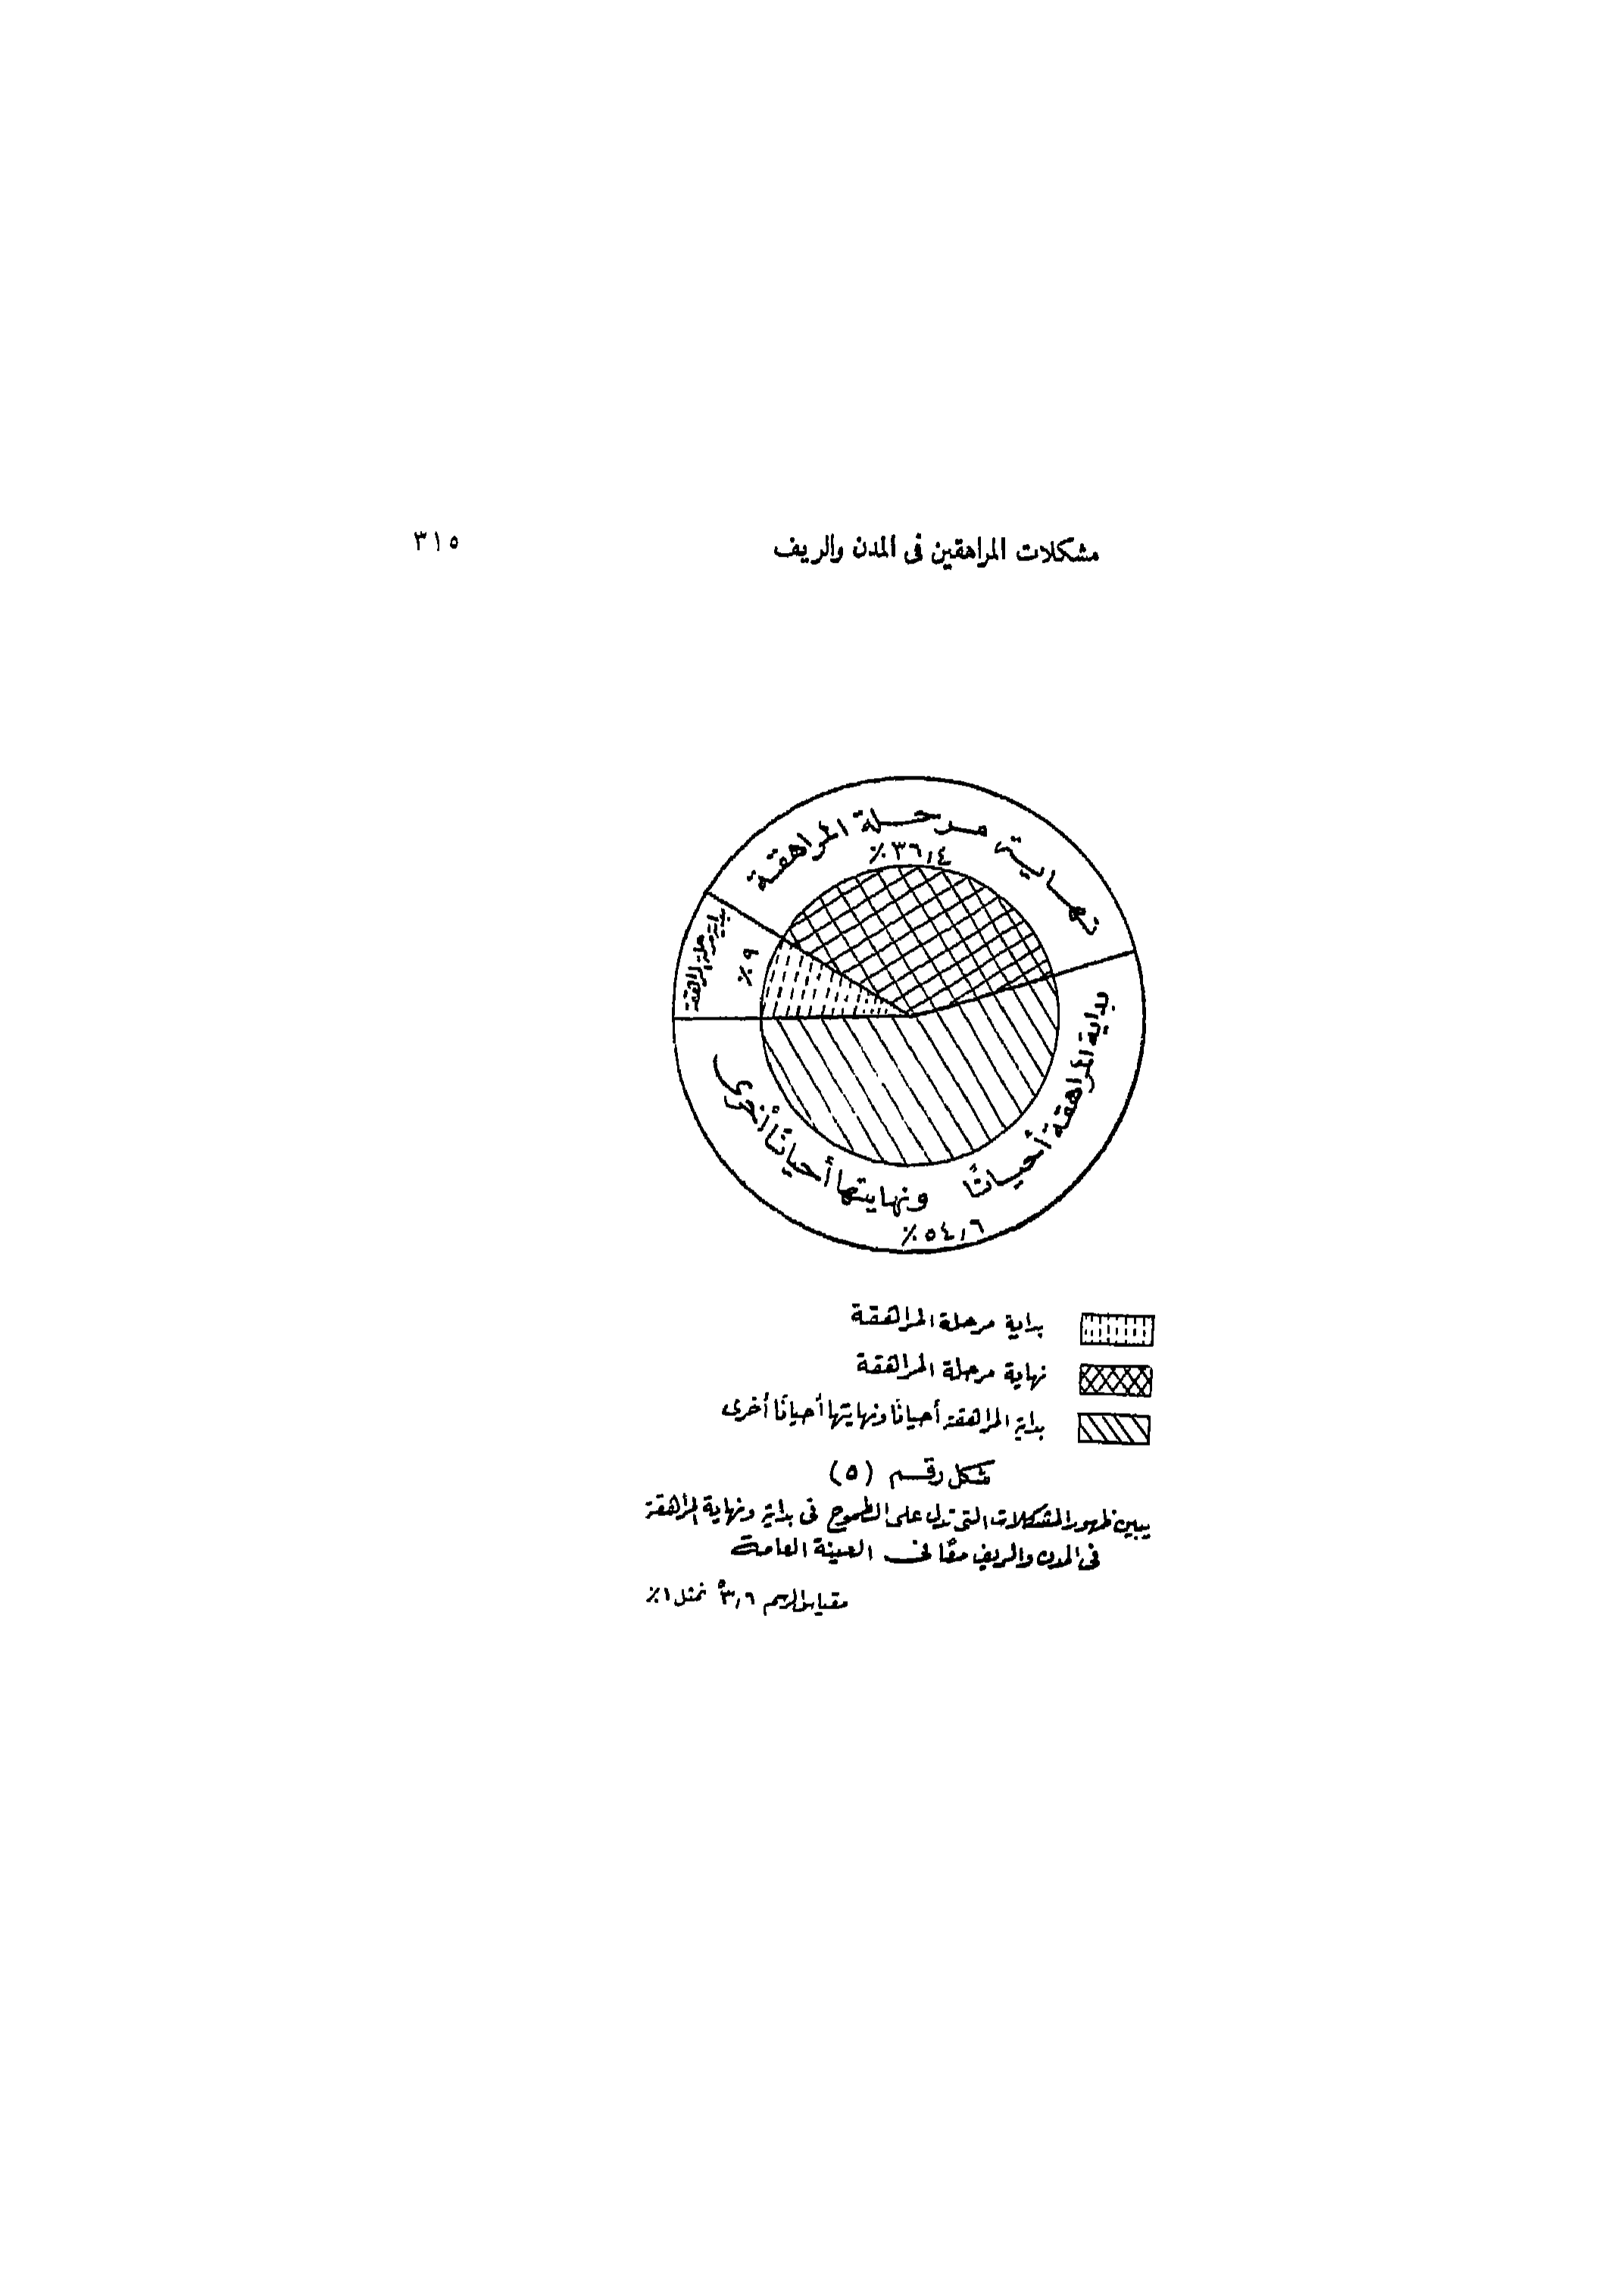 مشكلات المراهقين فى المدن والريف
٣١٥
نهاية مرحلة المراهقة
٣٦,٤ ٪
بداية مرحلة المراهقة
٩ ٪
بداية المراهقة أحيانًا ونهايتها أحيانًا أخرى
٥٤,٦ ٪
بداية مرحلة المراهقة
نهاية مرحلة المراهقة
بداية المراهقة أحيانًا ونهايتها أحيانًا أخرى
شكل رقم (٥)
يبين ظهور المشكلات التى تدل على الطموح فى بداية ونهاية المراهقة
فى المدن والريف معًا فى العينة العامة
مقياس الرسم ٣,٦° تمثل ١٪